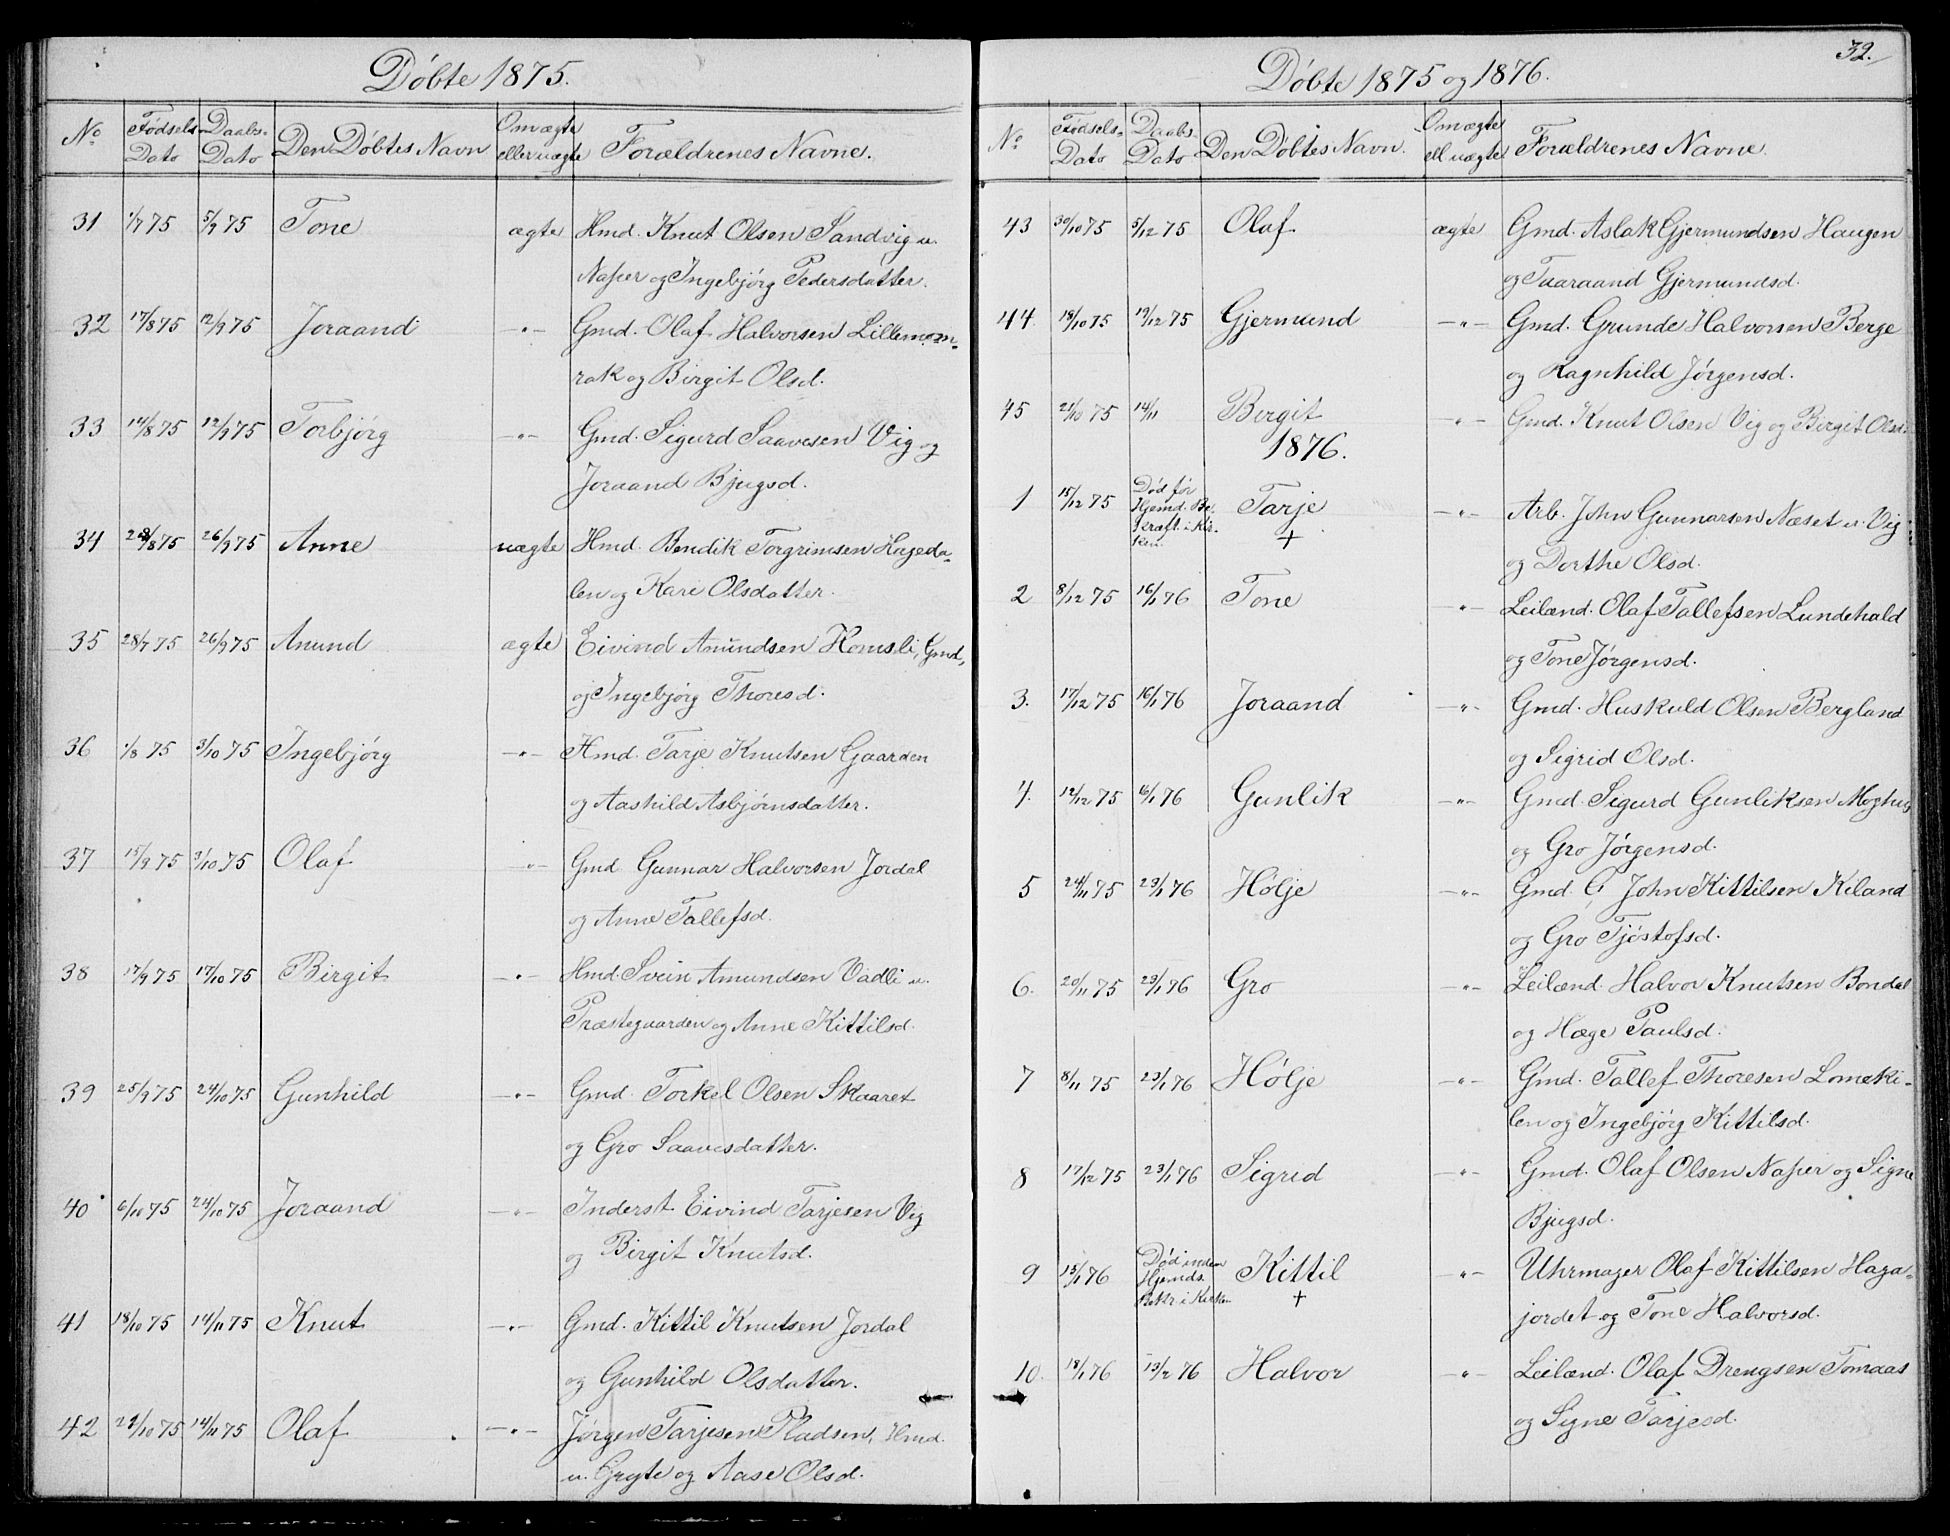 Døbte 1875.
No Fødsels Dato Daabs- Dato Den Døbtes Navn Om ægte eller uægte Forældrenes Navne.
31 1/7 75 5/9 75 Tone ægte Hmd. Knut Olsen Sandvig u.
Naper og Ingebjørg Pedersdatter.
32 17/8 75 12/9 75 Joraand -"- Gmd. Olaf Halvorsen Lillemom-
rak og Birgit Olsd.
33 14/8 75 12/9 75 Torbjørg -"- Gmd. Sigurd Saavesen Vig og
Joraand Bjugsd.
34 28/8 75 26/9 75 Anne uægte Hmd. Bendik Torgrimsen
len og Kari Olsdatter.
35 28/7 75 26/9 75 Anund ægte Eivind Amundsen Homsli, Gmd,
og Ingebjørg Thoresd.
36 1/8 75 3/10 75 Ingebjørg -"- Hmd. Tarje Knutsen Gaarden
og Aashild Asbjørnsdatter.
37 15/9 75 3/10 75 Olaf -"- Gmd Gunnar Halvorsen Jordal
og Anne Tallefsd.
38 17/9 75 17/10 75 Birgit -"- Hmd. Svein Amundsen Vadli u.
Præstegaarden og Anne Kittilsd.
39 25/9 75 24/10 75 Gunhild -"- Gmd. Torkel Olsen Skaaret
og Gro Saavesdatter.
40 6/10 75 24/10 75 Joraand -"- Inderst Eivind Tarjesen Vig
og Birgit Knutsd.
41 18/10 75 14/11 75 Knut -"- Gmd. Kittil Knutsen Jordal
og Gunhild Olsdatter.
42 29/10 75 14/11 75 Olaf -"- Jørgen Tarjesen Pladsen, Hmd.
u. Gryte og Aase Olsd.
32.
Døbte 1875 og 1876.
No Fødsels- Dato Daabs- Dato Den Døbtes Navn. Om ægte ell uægte Forældrenes Navne.
43 30/10 75 5/12 75 Olaf ægte Gmd. Aslak Gjermundsen Haugen
og Taaraand Gjermundsd.
44. 18/10 75 19/12 75 Gjermund -"- Gmd. Grunde Halvorsen Berge
og Ragnhild Jørgensd.
45 21/10 75 14/11 Birgit -"- Gmd. Knut Olsen Vig og Birgit Olsd.
1876.
1 15/12 75 Død før Hjemd. Be- kræft. i Kir- ken. Tarje + -"- Arb. John Gunnarsen Næset u. Vig
og Dorthe Olsd.
2 8/12 75 16/1 76 Tone -"- Leilænd. Olaf Tallefsen Lundehald
og Tone Jørgensd.
3. 17/12 75 16/1 76 Joraand -"- Gmd. Huskuld Olsen Bergland
og Sigrid Olsd.
4. 12/12 75 16/1 76 Gunlik -"- Gmd. Sigurd Gunliksen Moghus
og Gro Jørgensd.
5 24/11 75 23/1 76 Hølje -"- Gmd. G John Kittilsen Kiland
og Gro Tjøstofsd.
6. 20/11 75 23/1 76 Gro -"- Leilænd. Halvor Knutsen Bondal
og Hæge Paulsd.
7 8/11 75 23/1 76 Hølje -"- Gmd. Tallef Thoresen Lomeki-
len og Ingebjørg Kittilsd.
8 17/12 75 23/1 76 Sigrid -"- Gmd. Olaf Olsen Naper og Signe
Bjugsd.
9 13/1 76 Død inden Hjemds. Bekr. i Kirken Kittil + -"- Uhrmager Olaf Kittilsen Haga-
jordet og Tone Halvorsd.
10. 18/1 76 13/2 76 Halvor -"- Leilænd. Olaf Drengsen Tomaas
og Signe Tarjesd.